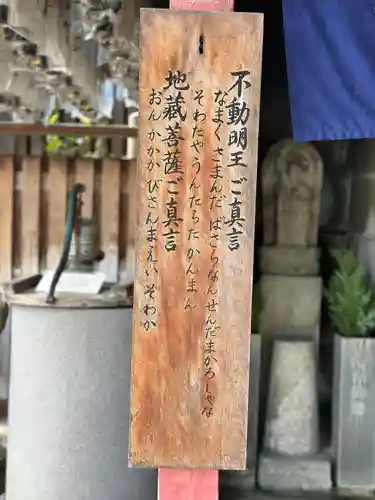 不動明王ご真言
なまくさまんだ ばさらなんせんだまかろしゃな
そわたやうんたらたかんまん
地蔵菩薩ご真言
おんかかかびさんまえいそわか